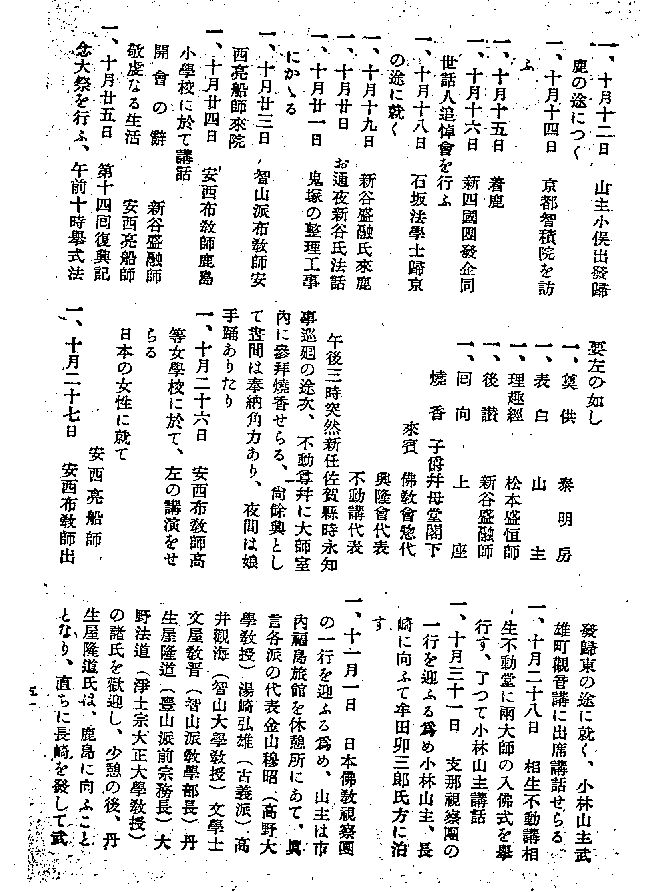 一、十月十二日　山主小俣出發歸
鹿の途につく
一、十月十四日　京都智積院を訪
ふ
一、十月十五日　着鹿
一、十月十六日　新四國團發企同
世話人追悼會を行ふ
一、十月十八日　石坂法學士歸京
の途に就く
一、十月十九日　新谷盛融氏來鹿
一、十月廿日　お通夜新谷氏法話
一、十月廿一日　鬼塚の整理工事
にかゝる
一、十月廿三日　智山派布敎師安
西亮船師來院
一、十月廿四日　安西布敎師鹿島
小學校に於て講話
開會の辭　新谷盛融師
敬虔なる生活　安西亮船師
一、十月廿五日　第十四回復興記
念大祭を行ふ、午前十時擧式法
要左の如し
一、奠供　泰明房
一、表白　山主
一、理趣經　松本盛恒師
一、後讃　新谷盛融師
一、回向　上座
燒香　子爵幷母堂閣下
來賓　佛敎會惣代
興隆會代表
不動講代表
午後三時突然新任佐賀縣時永知
事巡廻の途次、不動尊幷に大師室
內に參拜燒香せらる、尙餘興とし
て晝間は奉納角力あり、夜間は娘
手踊ありたり
一、十月二十六日　安西布敎師高
等女學校に於て、左の講演をせ
らる
日本の女性に就て
安西亮船師
一、十月二十七日　安西布敎師出
發歸東の途に就く、小林山主武
雄町觀音講に出席講話せらる
一、十月二十八日　相生不動講相
生不動堂に兩大師の入佛式を擧
行す、了つて小林山主講話
一、十月三十一日　支那視察團の
一行を迎ふる爲め小林山主、長
崎に向ふて牟田卯三郎氏方に泊
す
一、十一月一日　日本佛敎視察團
の一行を迎ふる爲め、山主は市
內福島旅館を休憩所にあて、眞
言各派の代表金山穆昭（高野大
學敎授）湯崎弘雄（古義派）高
井觀海（智山大學敎授）文學士
文屋敎晋（智山派敎學部長）丹
生屋隆道（豊山派前宗務長）大
野法道（淨土宗大正大學敎授）
の諸氏を歡迎し、少憩の後、丹
生屋隆道氏は、鹿島に向ふこと
となり、直ちに長崎を發して武